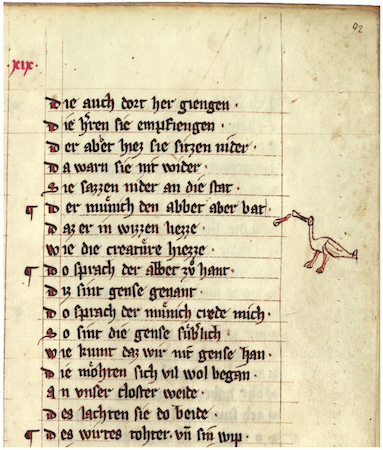 92
·xix·
Die auch dort her giengen·
Die h̾ren sie empfiengen·
Der abet hiez sie sitzen nider·
Da warn sie nit wider·
Sie sazzen nider an die stat·
¶ Der mu̍nich den abbet aber bat
Daz er in wizzen liezze
Wie die creatu̍re hiezze·
¶ Do sprach der abbet zuͦ hant·
Diz sint gense genant·
Do sprach der mu̍nich crede mich·
So sint die gense su̍b̾lich·
Wie kumt daz wir nit gense han·
Die mo̍hten sich vil wol began·
An unser closter weide·
Des lachten sie do beide·
¶ Des wirtes tohter· vn̄ sin wip·